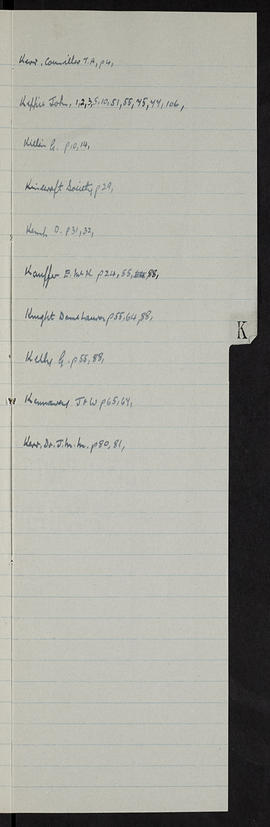 Kerr, Councillor T.A, p4,
Keppie John, 1,2,3,5,10,51,55,45,44,106,
Killin G. p10,14,
Kincraft Society p29,
D. p31,32,
Kauffer E. McK p24,55, 88,
Knight Dame Laura p55,64,88,
K
Kelly G. p55,88,
J & W p65,64,
Kerr, Dr. J.M.M. p80,81,